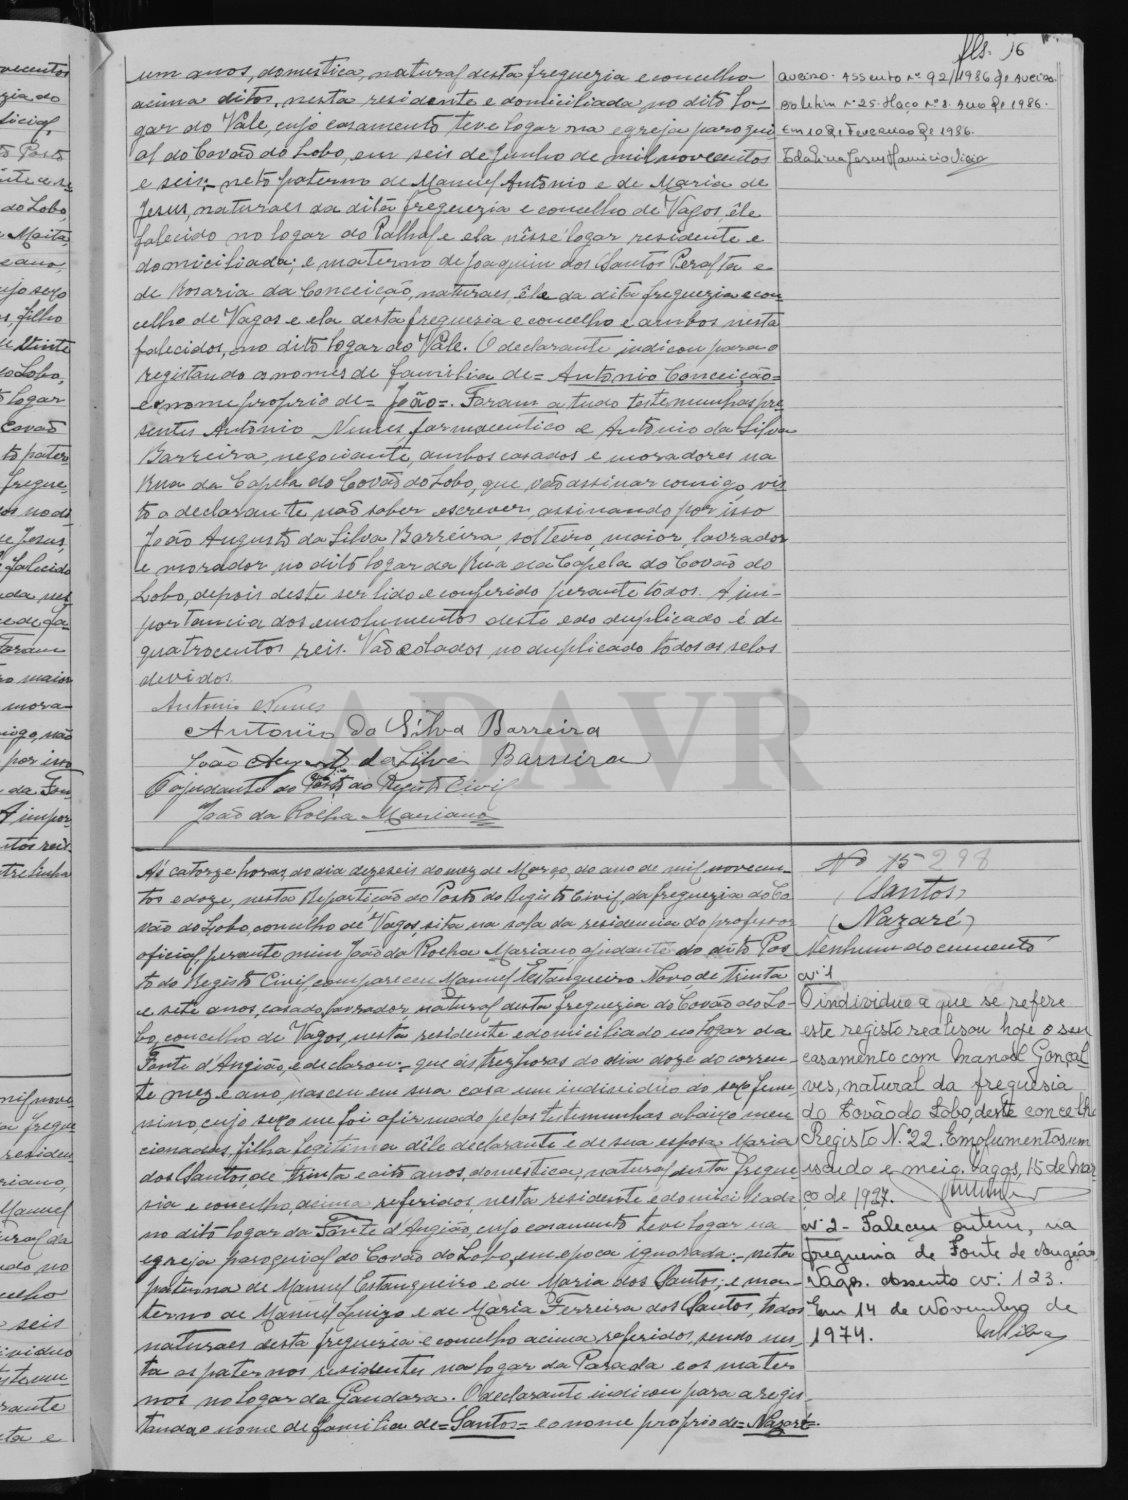 fls. 16
um anos, domestica, natural desta freguezia e concelho
acima ditos, nesta residente e domiciliada no dito lo-
gar do Vale, cujo casamento teve logar na egreja paroqui
al do Covão do Lobo, em seis de Junho de mil novecentos
e seis; neto paterno de Manuel Antonio e de Maria de
Jesus, naturaes da dita freguezia e concelho de Vagos, êle
falecido no logar do Palhal e ela nêsse logar residente e
domiciliada; e materno de Joaquim dos Santos Peralta e
de Rosaria da Conceição, naturaes, êle da dita freguezia e con-
celho de Vagos e ela desta freguezia e concelho e ambos nesta
falecidos, no dito logar do Vale. O declarante indicou para o
registando os nomes de familia de = Antonio Conceição =
e o nome proprio de = João =. Foram a tudo testemunhas pre-
sentes António Nunes, farmaceutico e António da Silva
Barreira, negociante, ambos casados e moradores na
Rua da Capela do Covão do Lobo, que vão assinar comigo, vis-
to o declarante não saber escrever, assinando por isso
João Augusto da Silva Barreira, solteiro, maior, lavrador
e morador no dito logar da Rua da Capela do Covão do
Lobo, depois deste ser lido e conferido perante todos. A im-
portancia dos emolumentos deste e do duplicado é de
quatrocentos reis. Vão colados no duplicado todos os selos
devidos.
Antonio Nunes
Antonio da Silva Barreira
João Augusto da Silva Barreira
O ajudante do Posto do Registo Civil
João da Rocha Mariano
Aveiro. Assento nº 92/1986 de Aveiro.
Boletim nº 25. Maço nº 2. Ano de 1986.
Em 10 de Fevereiro de 1986.
ADAVR
Ás catorze horas do dia dezeseis do mez de Março, do ano de mil novecen-
tos e doze, nesta Repartição do Posto do Registo Civil, da freguezia do Co
vão do Lobo, concelho de Vagos, sita na sala da residencia do professor
oficial, perante mim João da Rocha Mariano, ajudante do dito Pos
to do Registo Civil compareceu Manuel Estangueiro Novo, de trinta
e sete anos, casado, lavrador, natural desta freguezia do Covão do Lo-
bo, concelho de Vagos, nesta residente e domiciliado no logar da
Fonte d'Angião, e declarou: que ás trez horas do dia doze do corren-
te mez e ano, nasceu em sua casa um individuo do sexo femi
nino, cujo sexo me foi afirmado pelas testemunhas abaixo men
cionadas, filha legitima dêle declarante e de sua esposa Maria
dos Santos de trinta e oito anos, domestica, natural desta fregue
sia e concelho, acima referidos, nesta residente e domiciliada
no dito logar da Fonte d'Angião, cujo casamento teve logar na
egreja paroquial do Covão do Lobo, em epoca ignorada; neta
paterna de Manuel Estangueiro e de Maria dos Santos; e ma-
terna de Manuel Luizo e de Maria Ferreira dos Santos, todos
naturaes desta freguezia e concelho acima referidos, sendo nes-
ta os paternos residentes no logar da Parada e os mater
nos no logar da Gandara. O declarante indicou para a regis
tanda o nome de familia de = Santos = e o nome proprio de = Nazaré =.
Nº 15 298
(Santos)
(Nazaré)
Nenhum documento
nº 1
O individuo a que se refere
este registo realisou hoje o seu
casamento com Manoel Gonçal
ves, natural da freguesia
do Covão do Lobo, deste concelho
Registo N.º 22. Emolumentos um
escudo e meio. Vagos, 15 de Mar
ço de 1927.
nº 2 - Faleceu ontem, na
freguesia de Fonte de Angeão,
Vagos. Assento nº. 123.
Em 14 de Novembro de
1974.